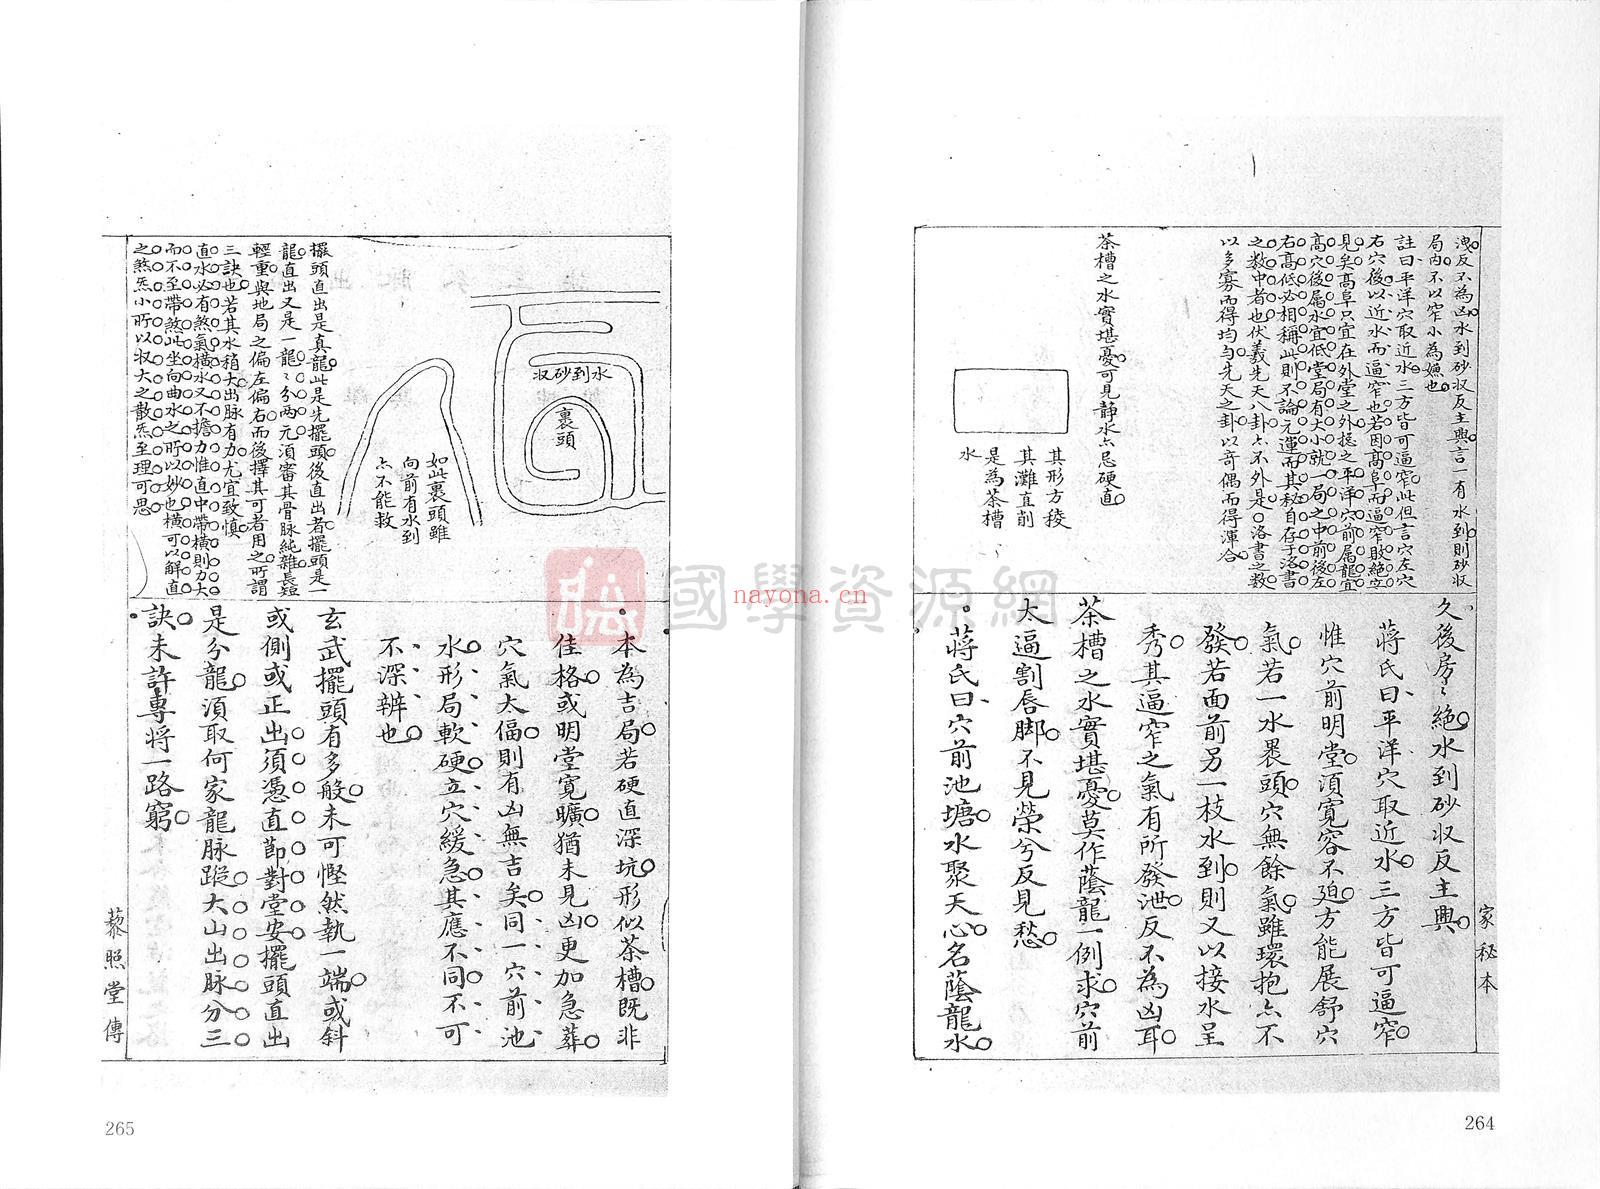 洩反不為凶水到砂収反主興言一有水到則砂収
局內不以窄小為嫌也
註曰平洋穴取近水三方皆可逼窄此但言穴左穴
右穴後以近水而逼窄也若因高阜而逼窄敗絕立
見矣高阜只宜在外堂之外挺之平洋穴前屬龍宜
高穴後屬水宜低堂局有大小就一局之中前後左
右高低必相稱此則不論元運而其秘自存于洛書
之数中者也伏羲先天八卦亦不外是洛書之数
以多寡而得均勻先天之卦以奇偶而得渾合
茶槽之水實堪憂可見静水亦忌硬直
其形方稜
其灘直削
是為茶槽
水
久後房〻絕水到砂収反主興
蔣氏曰平洋穴取近水三方皆可逼窄
惟穴前明堂須寬容不廹方能展舒穴
氣若一水褁頭穴無餘氣雖環抱亦不
發若面前另一枝水到則又以接水呈
秀其逼窄之氣有所發泄反不為凶耳
茶槽之水實堪憂莫作蔭龍一例求穴前
太逼割唇脚不見榮兮反見愁
蔣氏曰穴前池塘水聚天心名蔭龍水
家秘本
264
水到砂収
裏頭
如此裏頭雖
向前有水到
亦不能救
擺頭直出是真龍此是先擺頭後直出者擺頭是一
龍直出又是一龍〻分兩元須審其骨脉純雜長短
輕重與地局之偏左偏右而後擇其可者用之所謂
三訣也若其水稍大出脉有力尤宜致慎
直水必有煞氣橫水又不擔力惟直中帶橫則力大
而不至帶煞此坐向曲水之所以妙也橫可以解直
之煞炁小所以収大之散炁至理可思
本為吉局若硬直深坑形似茶槽既非
佳格或明堂寬曠猶未見凶更加急葬
穴氣太偪則有凶無吉矣同一穴前池
水形局軟硬立穴緩急其應不同不可
不深辨也
玄武擺頭有多般未可慳然執一端或斜
或側或正出須憑直節對堂安擺頭直出
是分龍須取何家龍脉踪大山出脉分三
訣未許專將一路窮
藜照堂傳
265
國學資源網
nayona.cn